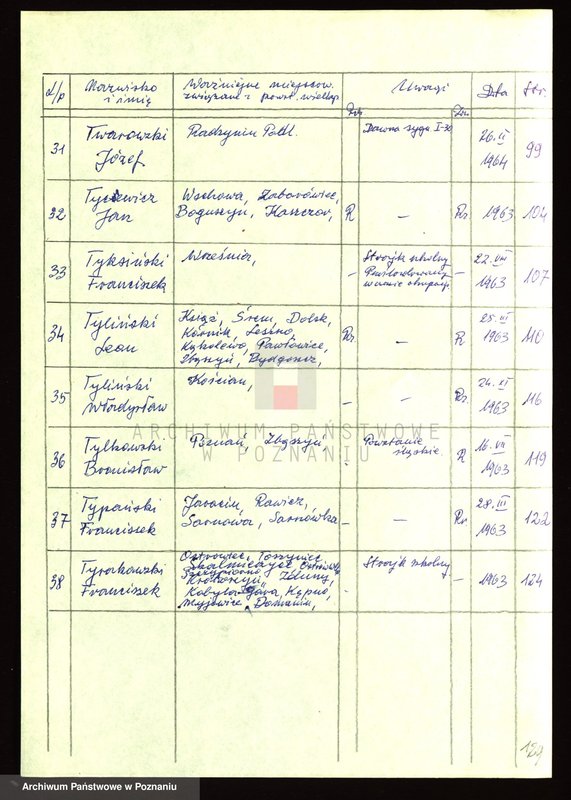 L/p Nazwisko i imię Ważniejsze miejscow. związane z powst. wielkp. Uwagi Data Str.
31 Twarowski Józef Radzymin Podl. Dawna sygn I-30 26.II 1964 99
32 Jan Wschowa, Zaborówiec, Boguszyn, Kaszczor, R – Kr 1963 104
33 Tyksiński Franciszek Września, – Strajk szkolny – 22.VIII 1963 107
34 Tyliński Leon Książ, Śrem, Dolsk, Kórnik, Leszno, Kąkolewo, Pawłowice, Zbąszyń, Bydgoszcz, Kr – R 25.III 1963 110
35 Tyliński Władysław Kościan, – – Kr. 24.VI 1963 116
36 Tylkowski Bronisław Poznań, Zbąszyń – Powstanie śląskie R 16.VII 1963 119
37 Typański Franciszek Jarocin, Rawicz, Sarnowa, Sarnówka – – Kr 28.III 1963 122
38 Tyrakowski Franciszek Skalmierzyce Szczypiorno Krotoszyn, Zduny, Kobyla Góra, Kępno, Myjomice, Domanin, – Strajk szkolny – 1963 124
ARCHIWUM PAŃSTWOWE
W POZNANIU
Archiwum Państwowe w Poznaniu